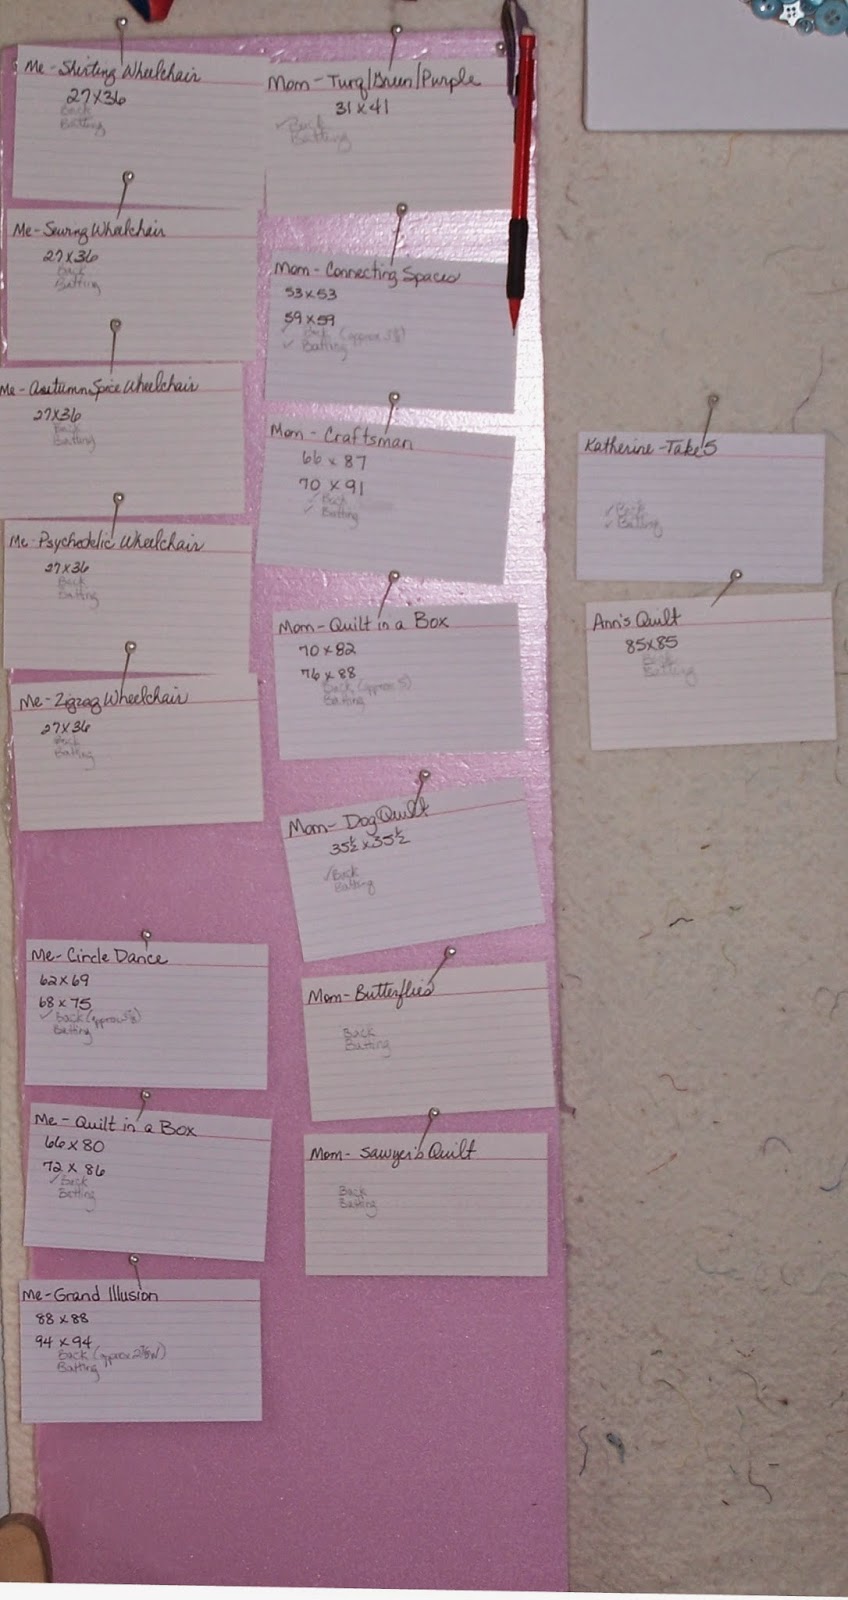 Me - Shirting Wheelchair
27 x 36
Back
Batting
Me - Sewing Wheelchair
27 x 36
Back
Batting
Me - Autumn Spice Wheelchair
27 x 36
Back
Batting
Me - Psychedelic Wheelchair
27 x 36
Back
Batting
Me - Zigzag Wheelchair
27 x 36
Back
Batting
Me - Circle Dance
62 x 69
68 x 75
✓ Back (approx
Batting
Me - Quilt in a Box
66 x 80
72 x 86
✓ Back
Batting
Me - Grand Illusion
88 x 88
94 x 94
Back (approx
Batting
Mom - Turq/Green/Purple
31 x 41
✓ Back
Batting
Mom - Connecting Spaces
53 x 53
59 x 59
✓ Back (approx
✓ Batting
Mom - Craftsman
66 x 87
70 x 91
✓ Back
✓ Batting
Mom - Quilt in a Box
70 x 82
76 x 88
Back (approx 5)
Batting
Mom - Dog Quilt
35½ x 35½
✓ Back
Batting
Mom - Butterflies
Back
Batting
Mom - Sawyer's Quilt
Back
Batting
Katherine - Take 5
✓ Back
✓ Batting
Ann's Quilt
85 x 85
Back
Batting